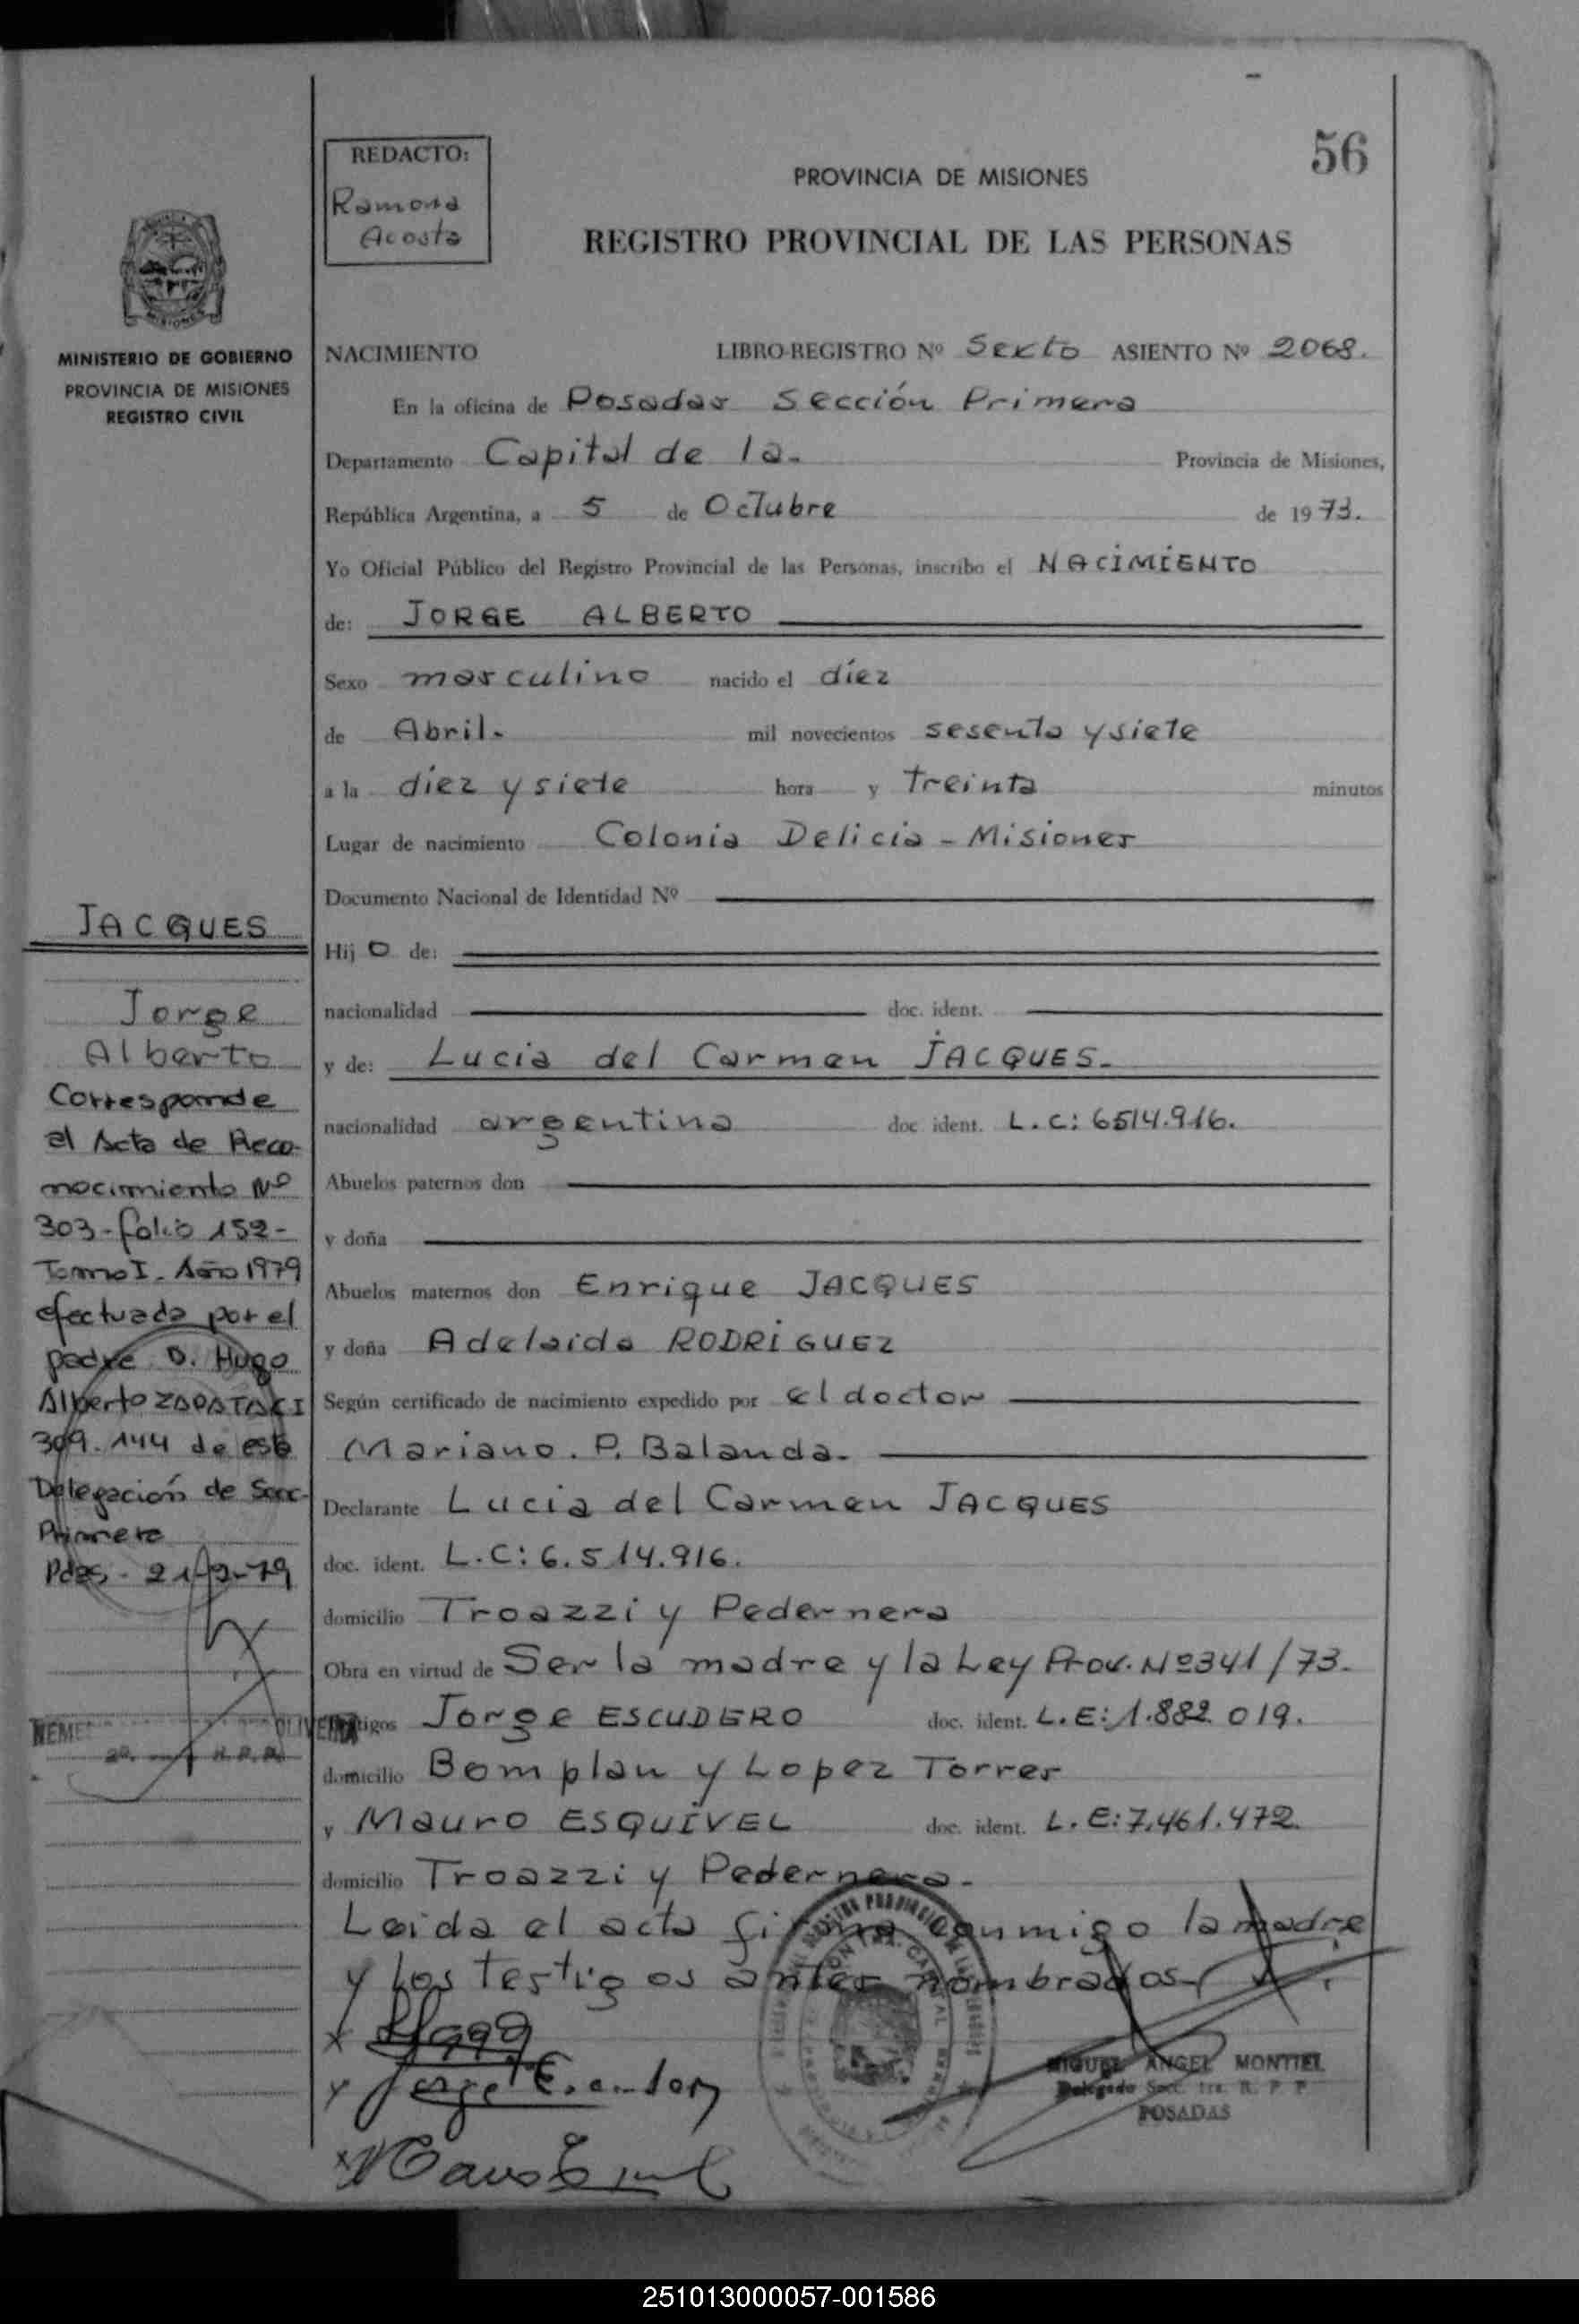 56
REDACTO:
Ramona
Acosta
PROVINCIA DE MISIONES
REGISTRO PROVINCIAL DE LAS PERSONAS
MINISTERIO DE GOBIERNO
PROVINCIA DE MISIONES
REGISTRO CIVIL
NACIMIENTO LIBRO-REGISTRO Nº Sexto ASIENTO Nº 2068.
En la oficina de Posadas Sección Primera
Departamento Capital de la. Provincia de Misiones,
República Argentina, a 5 de Octubre de 1973.
Yo Oficial Público del Registro Provincial de las Personas, inscribo el NACIMIENTO
de: JORGE ALBERTO
Sexo masculino nacido el díez
de Abril. mil novecientos sesenta y siete
a la díez y siete hora y treinta minutos
Lugar de nacimiento Colonia Delicia - Misiones
Documento Nacional de Identidad Nº
Hijo de:
nacionalidad doc. ident.
y de: Lucia del Carmen JACQUES.
nacionalidad argentina doc ident. L.C: 6514.916.
Abuelos paternos don
y doña
Abuelos maternos don Enrique JACQUES
y doña Adelaida RODRIGUEZ
Según certificado de nacimiento expedido por el doctor
Mariano. P. Balanda.
Declarante Lucia del Carmen JACQUES
doc. ident. L.C: 6.514.916.
domicilio Troazzi y Pedernera
Obra en virtud de Ser la madre y la Ley Prov. Nº341/73.
tigos Jorge ESCUDERO doc. ident. L.E: 1.882.019.
domicilio Bomplan y Lopez Torres
y Mauro ESQUIVEL doc. ident. L.E: 7.461.472.
domicilio Troazzi y Pedernera.
Leida el acta firma conmigo la madre
y los testigos antes nombrados
MIGUEL ANGEL MONTIEL
Delegado Secc. 1ra. R. P. P.
POSADAS
JACQUES
Jorge
Alberto
Corresponde
al Acta de Reco-
nocimiento Nº
303-folio 152-
Tomo I. Año 1979
efectuada por el
padre D. Hugo
Alberto ZAPATA CI
309.144 de esta
Delegación de Secc-
Primera
Pdas - 21-9-79
251013000057-001586